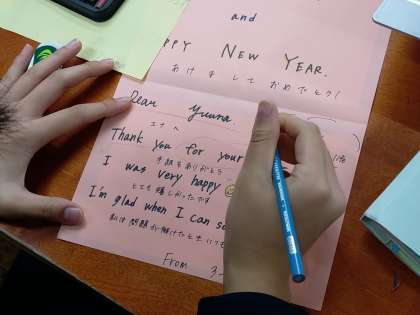 and
PPY NEW YEAR.
あけましておめでとう!
Dear Yuuna.
Thank you for your
手紙をありがとう
I was very happy
とても嬉しかったです
I'm glad when I can so
私は問題が解けたときいつも
From 3-